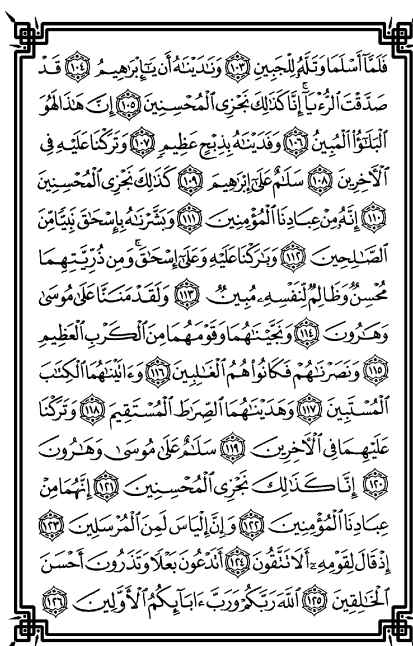 فَلَمَّآ أَسْلَمَا وَتَلَّهُۥ لِلْجَبِينِ ١٠٣ وَنَٰدَيْنَٰهُ أَن يَٰٓإِبْرَٰهِيمُ ١٠٤ قَدْ
صَدَّقْتَ ٱلرُّءْيَآ ۚ إِنَّا كَذَٰلِكَ نَجْزِى ٱلْمُحْسِنِينَ ١٠٥ إِنَّ هَٰذَا لَهُوَ
ٱلْبَلَٰٓؤُا۟ ٱلْمُبِينُ ١٠٦ وَفَدَيْنَٰهُ بِذِبْحٍ عَظِيمٍ ١٠٧ وَتَرَكْنَا عَلَيْهِ فِى
ٱلْءَاخِرِينَ ١٠٨ سَلَٰمٌ عَلَىٰٓ إِبْرَٰهِيمَ ١٠٩ كَذَٰلِكَ نَجْزِى ٱلْمُحْسِنِينَ
١١٠ إِنَّهُۥ مِنْ عِبَادِنَا ٱلْمُؤْمِنِينَ ١١١ وَبَشَّرْنَٰهُ بِإِسْحَٰقَ نَبِيًّا مِّنَ
ٱلصَّٰلِحِينَ ١١٢ وَبَٰرَكْنَا عَلَيْهِ وَعَلَىٰٓ إِسْحَٰقَ ۚ وَمِن ذُرِّيَّتِهِمَا
مُحْسِنٌ وَظَالِمٌ لِّنَفْسِهِۦ مُبِينٌ ١١٣ وَلَقَدْ مَنَنَّا عَلَىٰ مُوسَىٰ
وَهَٰرُونَ ١١٤ وَنَجَّيْنَٰهُمَا وَقَوْمَهُمَا مِنَ ٱلْكَرْبِ ٱلْعَظِيمِ
١١٥ وَنَصَرْنَٰهُمْ فَكَانُوا۟ هُمُ ٱلْغَٰلِبِينَ ١١٦ وَءَاتَيْنَٰهُمَا ٱلْكِتَٰبَ
ٱلْمُسْتَبِينَ ١١٧ وَهَدَيْنَٰهُمَا ٱلصِّرَٰطَ ٱلْمُسْتَقِيمَ ١١٨ وَتَرَكْنَا
عَلَيْهِمَا فِى ٱلْءَاخِرِينَ ١١٩ سَلَٰمٌ عَلَىٰ مُوسَىٰ وَهَٰرُونَ
١٢٠ إِنَّا كَذَٰلِكَ نَجْزِى ٱلْمُحْسِنِينَ ١٢١ إِنَّهُمَا مِنْ
عِبَادِنَا ٱلْمُؤْمِنِينَ ١٢٢ وَإِنَّ إِلْيَاسَ لَمِنَ ٱلْمُرْسَلِينَ ١٢٣
إِذْ قَالَ لِقَوْمِهِۦٓ أَلَا تَتَّقُونَ ١٢٤ أَتَدْعُونَ بَعْلًا وَتَذَرُونَ أَحْسَنَ
ٱلْخَٰلِقِينَ ١٢٥ ٱللَّهَ رَبَّكُمْ وَرَبَّ ءَابَآئِكُمُ ٱلْأَوَّلِينَ ١٢٦